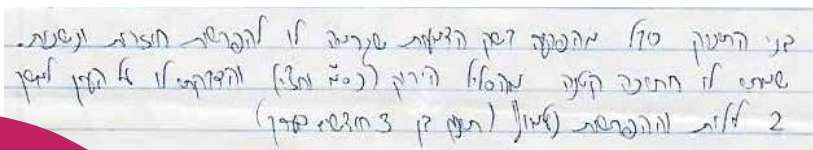 בני התינוק סבל מהפרעה בשק הדמעות שגרמה לו להפרשות חוזרות ונשנות.
שמתי לו חתיכה קטנה מהסליל הירוק (כס"מ וחצי) והדבקתי לו על העין למשך
2 לילות וההפרשות נעלמו! (תינוק בן 3 חודשים בערך)